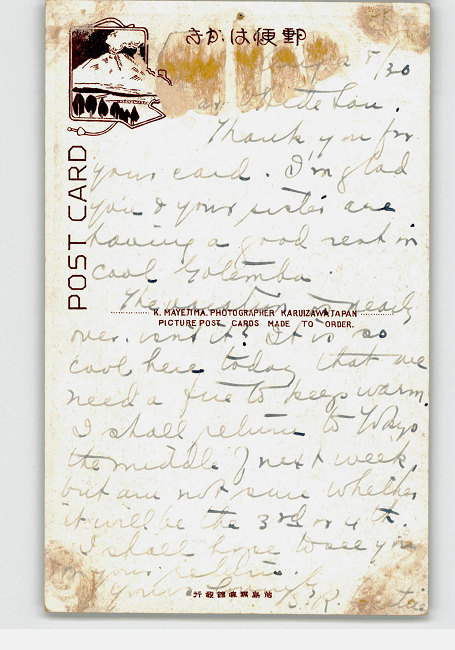 郵便はがき
POST CARD
5/30
Thank you for
your card. I'm glad
you & your sister are
having a good rest in
cool Gotemba.
The vacation is nearly
K. MAYEJIMA, PHOTOGRAPHER KARUIZAWA, JAPAN
PICTURE POST CARDS MADE TO ORDER.
over, isn't it? It is so
cool here today that we
need a fire to keep warm.
I shall return to Tokyo
the middle of next week,
but am not sure whether
it will be the 3rd or 4th.
I shall hope to see you
on your return.
B. R.